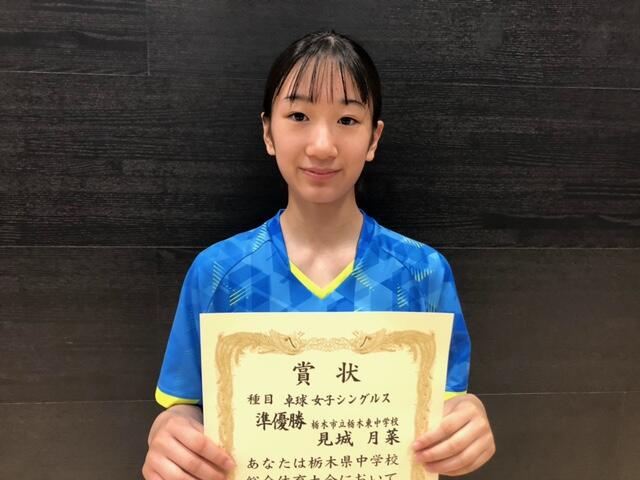 賞状
種目 卓球 女子シングルス
準優勝 栃木市立栃木東中学校
見城 月菜
あなたは栃木県中学校
総合体育大会において